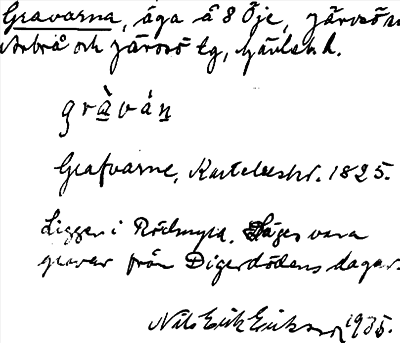 Gravarna, äga å 8 Öje, Järvsö sn
Arbrå och Järvsö tg, Gävleb. l.
gràván
Grafvarne, Kartebeskr. 1825.
Ligger i Rödmyra. Säges vara
gravar från Digerdödens dagar.
Nils Erik Eriksson 1935.